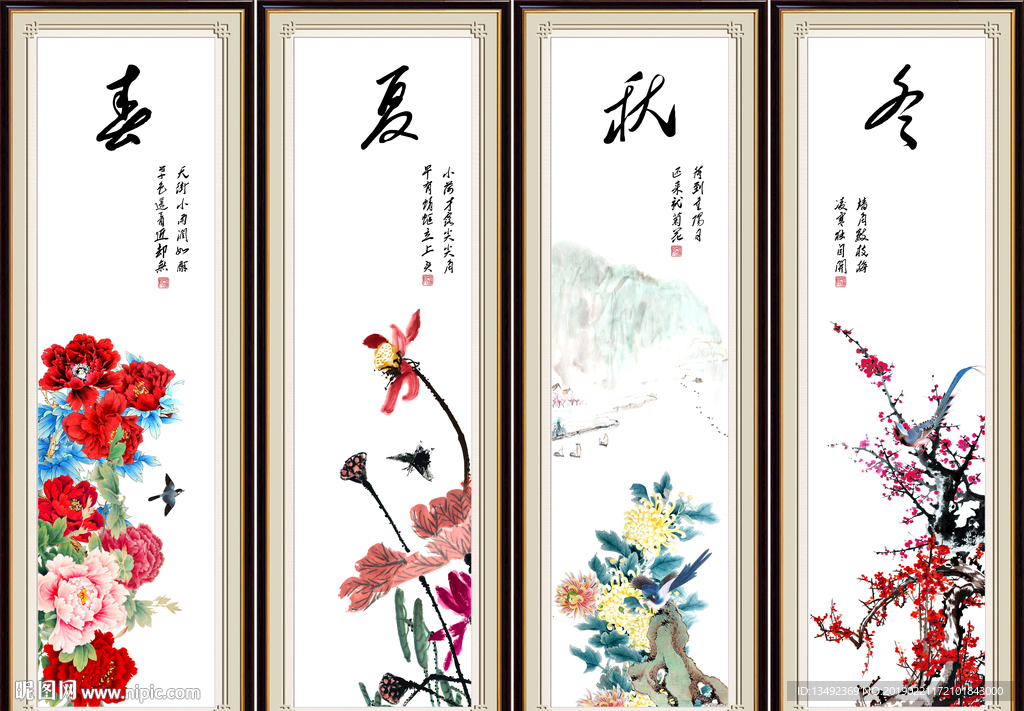 春
天街小雨润如酥
草色遥看近却无
夏
小荷才露尖尖角
早有蜻蜓立上头
秋
待到重阳日
还来就菊花
冬
墙角数枝梅
凌寒独自开
昵图网 www.nipic.com
ID:13492369 NO:20190221172101843000